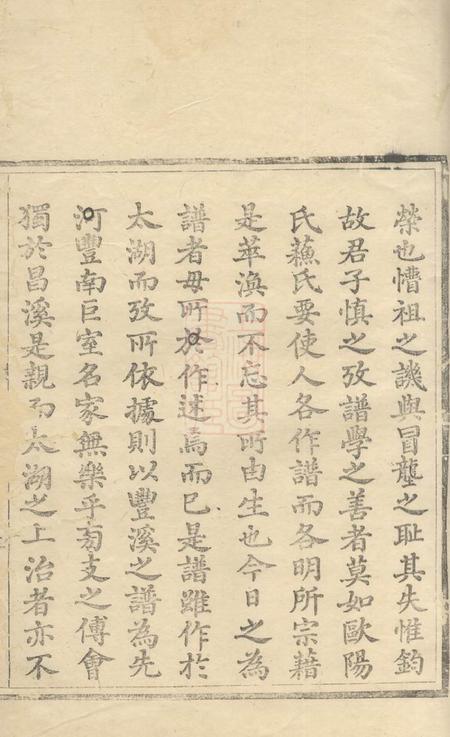 榮也懵祖之譏與冒壟之耻其失惟鈞
故君子慎之攷譜學之善者莫如歐陽
氏蘓氏要使人各作譜而各明所宗藉
是萃渙而不忘其所由生也今日之為
譜者毋所於作述焉而已是譜雖作於
太湖而攷所依據則以豐溪之譜為先
河豐南巨室名家無樂乎旁支之傅會
獨於昌溪是親而太湖之上治者亦不